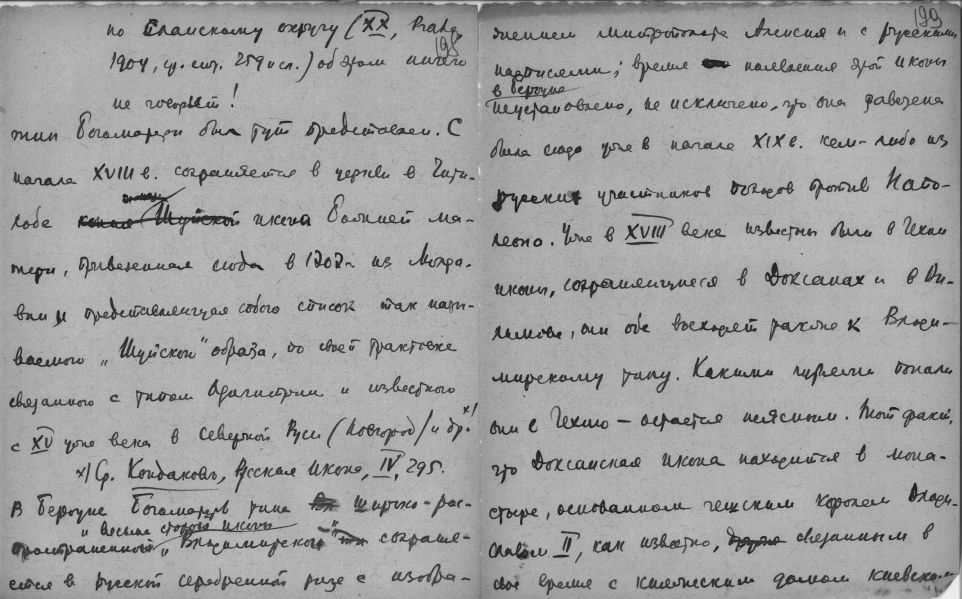 по Сланскому округу (XX, Praha,
1904, ср. стр. 259 и сл.) об этом ничего
198
не говорит!
тип Богоматери был тут представлен. С
начала XVIII в. сохраняется в церкви в
икона Божией ма-
тери, привезенная сюда в 1707 г. из Молда-
вии и представляющая собою список так назы-
ваемого „Шуйского" образа, по своей трактовке
связанного с типом Одигитрии и известного
с XV уже века в Северной Руси (Новгород) и др. х)
х) Ср. Кондаковъ, Русская икона, IV, 295.
В Бероуне Богоматерь типа широко-рас-
и весьма старой иконы
пространенной „Владимирской" сохраня-
ется в русской серебренной ризе с изобра-
199
жением митрополита Алексия и с русскими
надписями; время появления этой иконы
в Бероуне
неустановлено, не исключено, что она завезена
была сюда уже в начале XIX в. кем-либо из
русских участников походов против Напо-
леона. Уже в XVIII веке известны были в Чехии
иконы, сохраняющиеся в Доксанах и в
они обе восходят также к Влади-
мирскому типу. Какими путями попали
они в Чехию — остается неясным. Тот факт,
что Доксанская икона находится в мона-
стыре, основанном чешским королем Влади-
славом II, как известно, связанным в
свое время с княжеским домом киевским